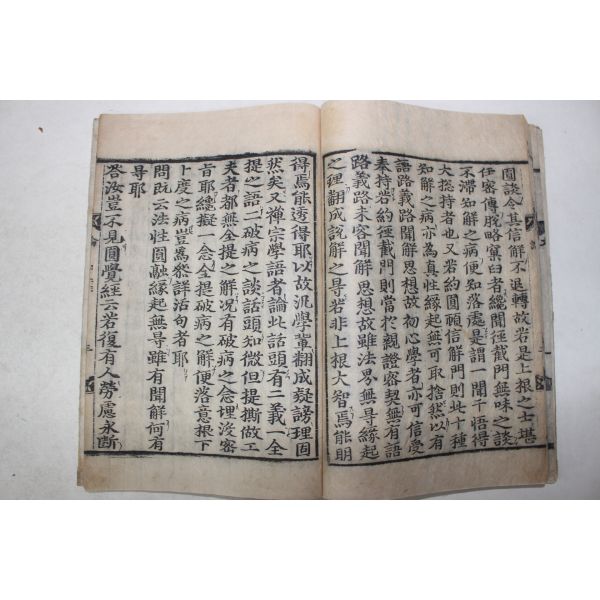 圓談令其信解不退轉故若是上根之士堪
任密傳脫略窠臼者纔聞徑截門無味之談
不滯知解之病便知落處是謂一聞千悟得
大摠持者也又若約圓頓信解門則此十種
知解之病亦為真性緣起無可取捨然以有
語路義路聞解思想故初心學者亦可信受
奉持若約徑截門則當於親證密契無有語
路義路未容聞解思想故雖法界無㝵緣起
之理翻成說解之㝵若非上根大智焉能明
得焉能透得耶以故汎學輩翻成疑謗理固
然矣又禪宗學語者論此話頭有二義一全
提之語二破病之談話頭知微但提撕做工
夫者都無全提之解况有破病之念埋沒密
旨耶纔擬一念全提破病之解便落意根下
卜度之病豈為叅詳活句者耶
問既云法性圓融緣起無㝵雖有聞解何有
㝵耶
答汝豈不見圓覺經云若復有人勞慮永斷